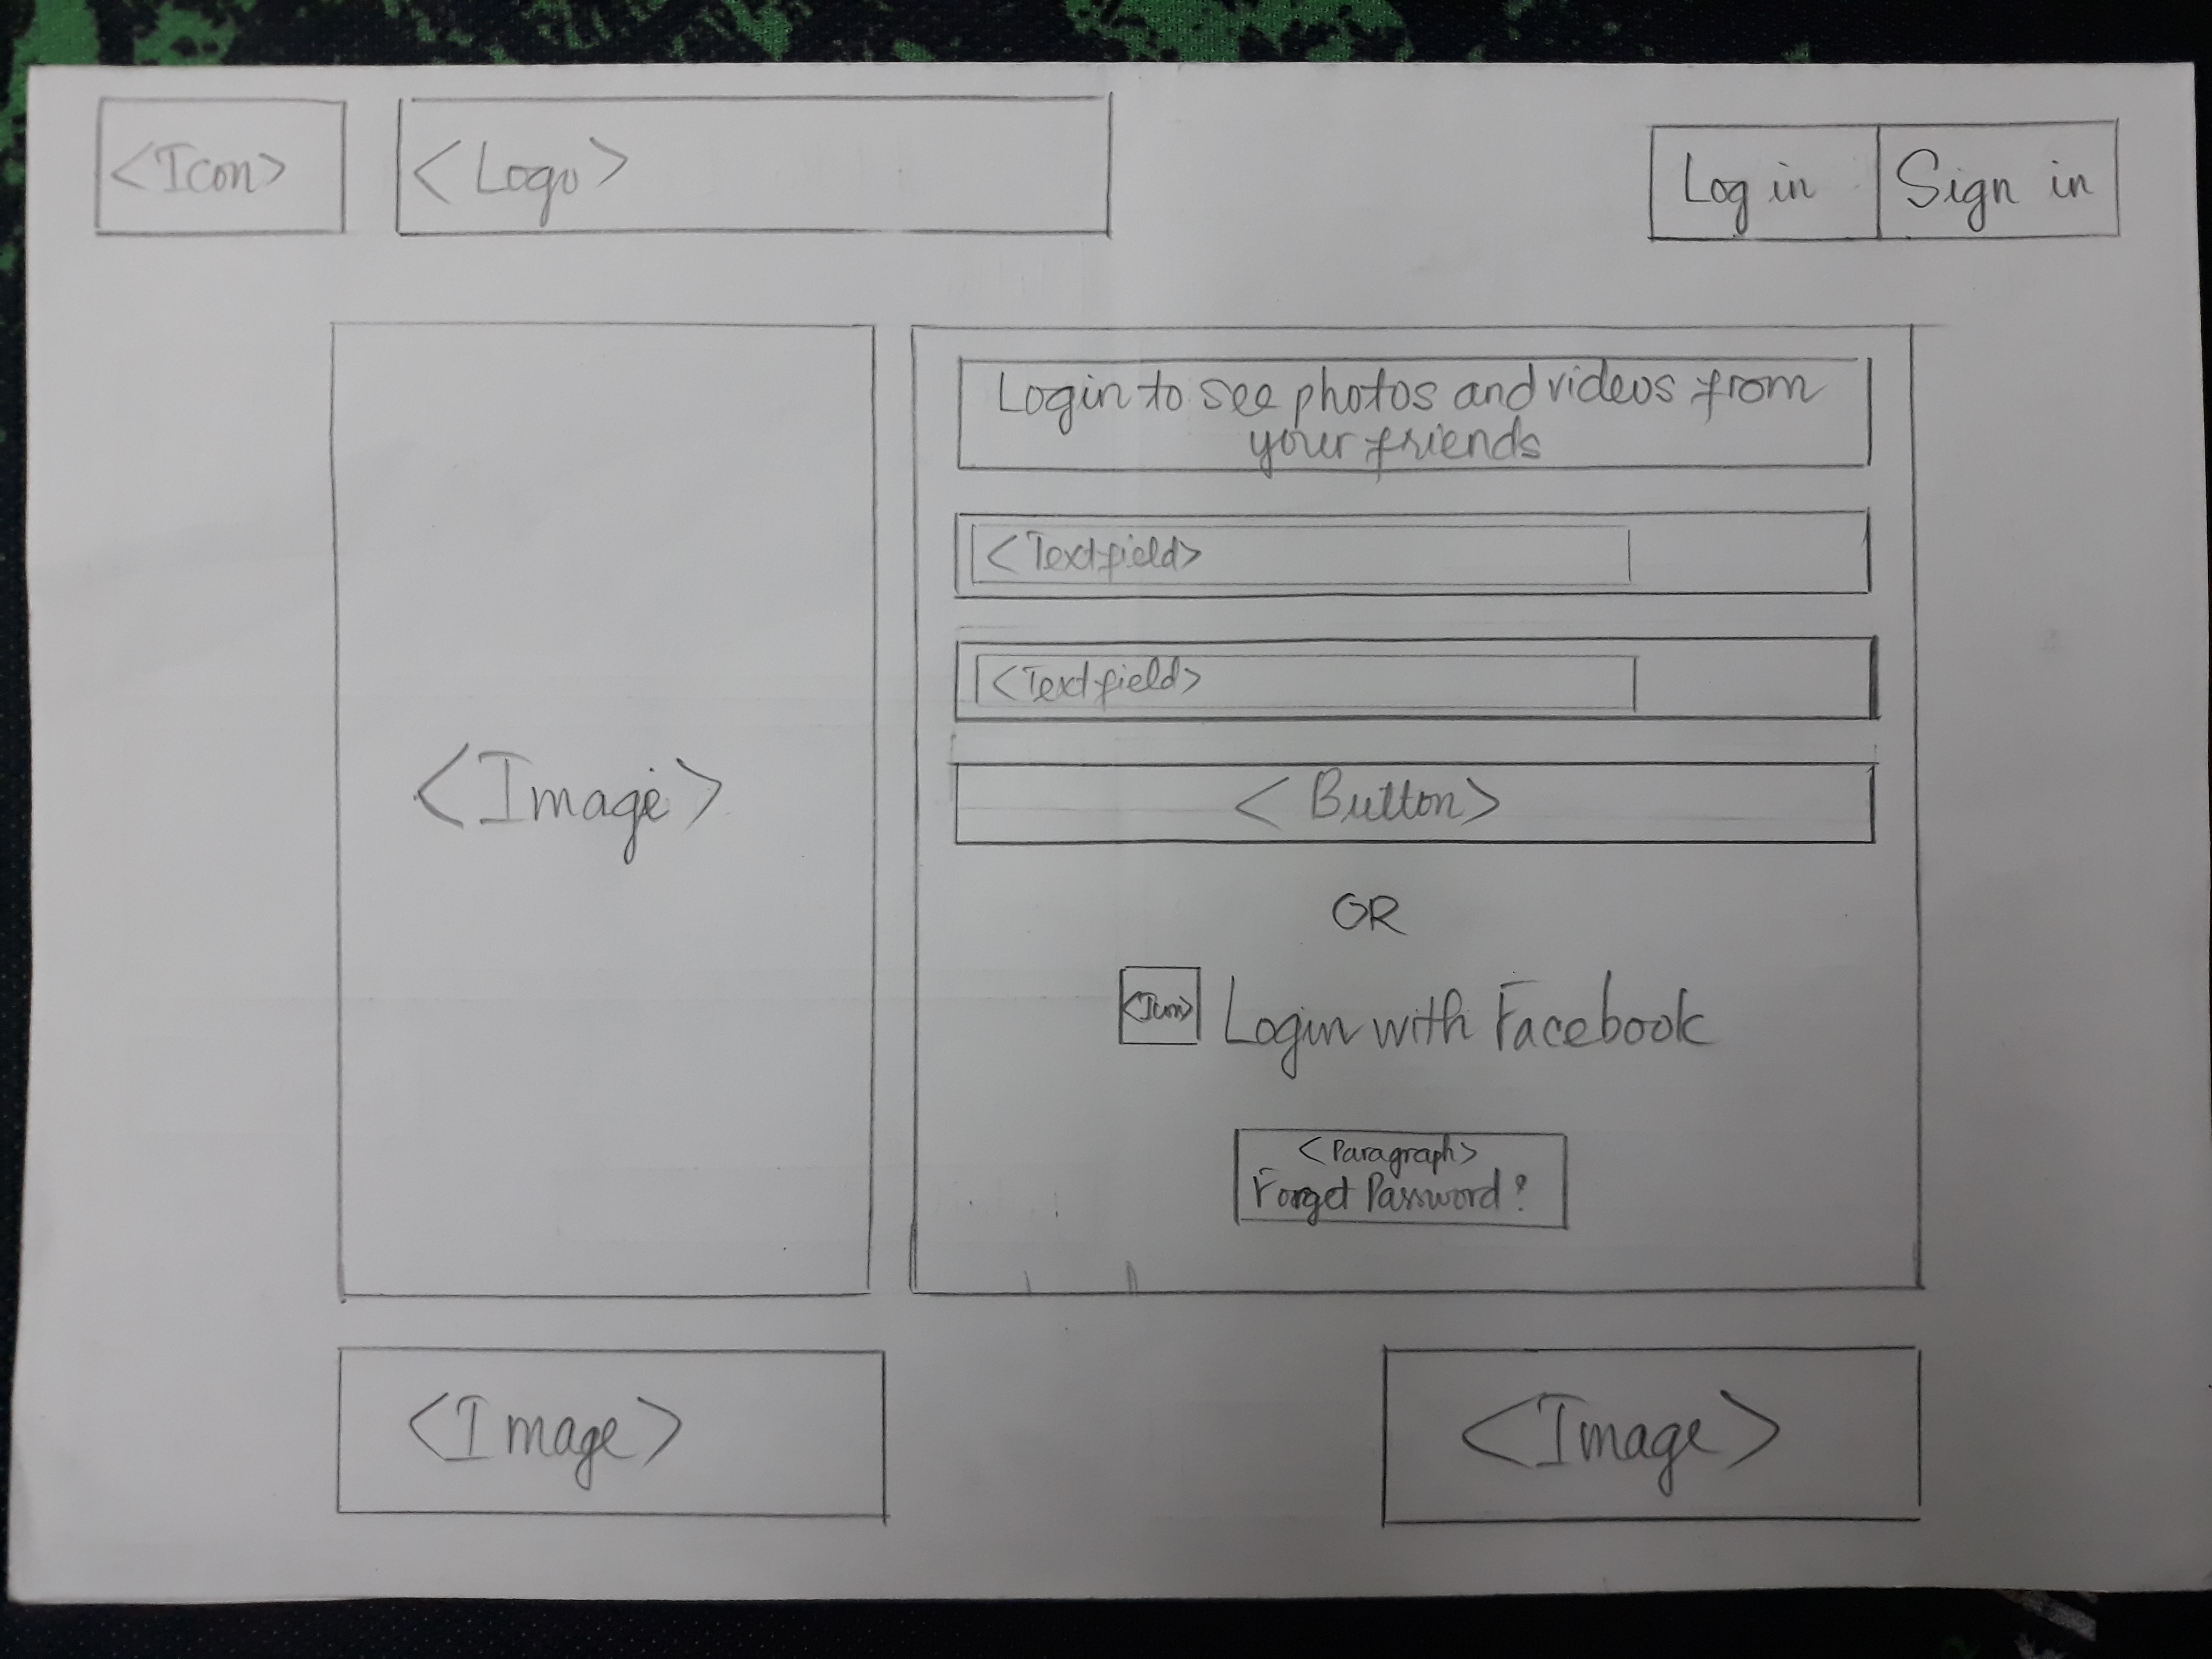 <Icon>
<Logo>
Log in
Sign in
<Image>
Login to see photos and videos from
your friends
<Textfield>
<Textfield>
<Button>
OR
<Icon>
Login with Facebook
<Paragraph>
Forget Password?
<Image>
<Image>